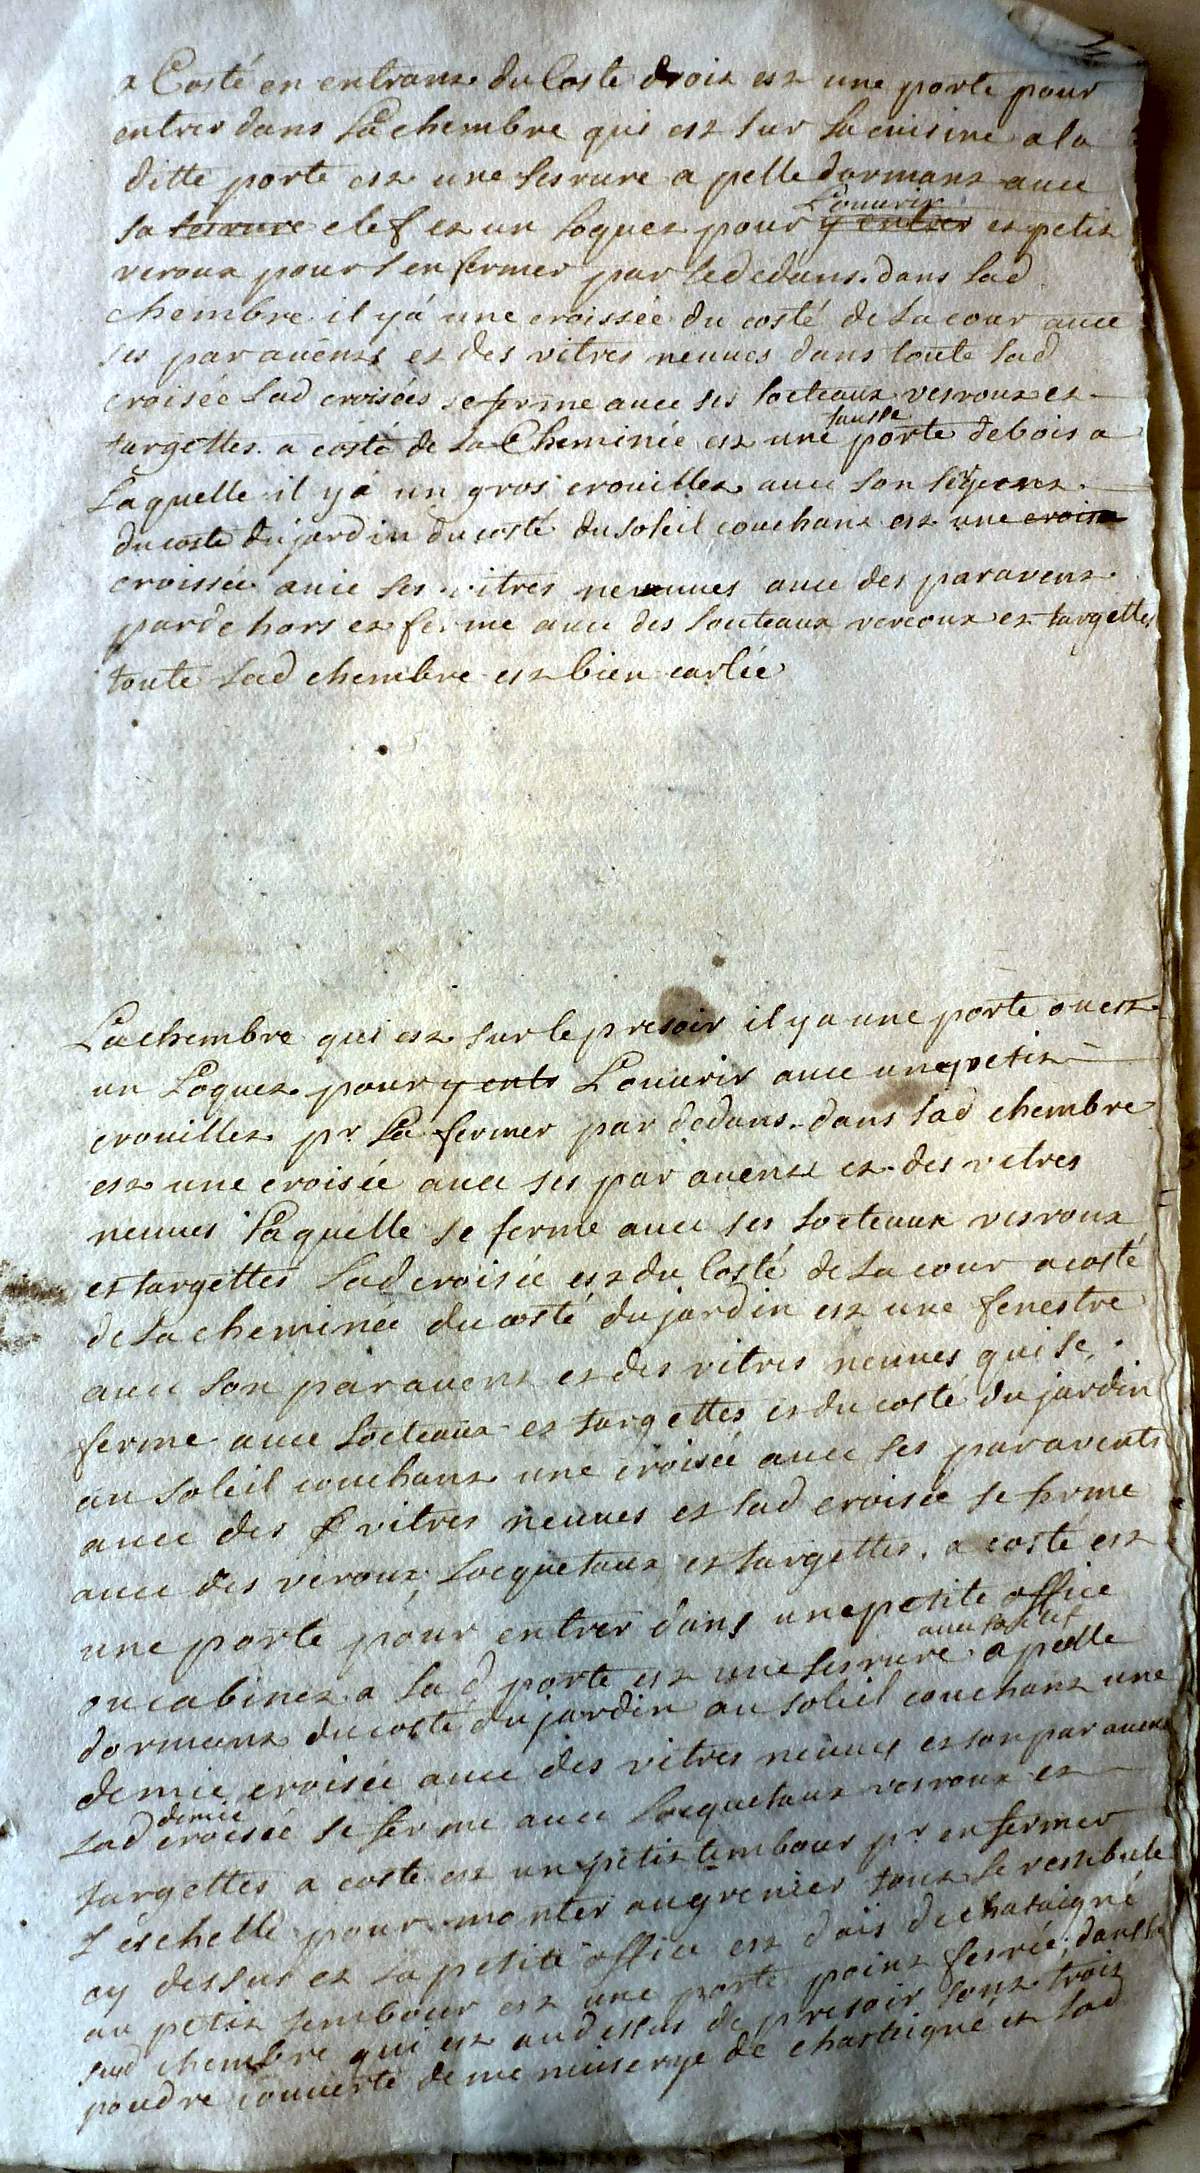 a Costé en entrant du Coste droit est une porte pour
entrer dans La chembre qui est sur La cuisine a la
ditte porte est une serrure a pelle dormant auec
sa serrure clef et un Loquet pour y entrer L'ouurir et petit
veroux pour l'enfermer par Lededans. dans Lad
chembre il y á une croissée du costé de La cour auec
ses parauents et des vitres neuues dans toute Lad
croisée Lad croisées se ferme auec ses Locteaux verroux et
targettes. a costé de La Cheminée est une fausse porte de bois a
Laquelle il y a un gros crouillet auec son
du costé du jardin du costé du soleil couchant est une croise
croissée auec ses vitres neuuues auec des paravent
par dehors et ferme auec des Louteaux veroux et targettes
toute Lad chembre est bien carlée
La chembre qui est sur le presoir il y a une porte ou est
un Loquet pour y entr L'ouurir auec un petit
crouillet pr La fermer par dedans. dans Lad chembre
est une croisée auec ses parauent et des vitres
neuues Laquelle se ferme auec ses Locteaux verroux
et targettes Lad croisée est du Costé de La cour a costé
de La cheminée du costé du jardin est une fenestre
auec son parauent et des vitres neuues qui se
ferme auec Locteaux et targettes et du costé du jardin
au soleil couchant une croisée auec ses paravents
auec des vitres neuues et Lad croisée se ferme
auec des veroux Locquetaux et targettes. a costé est
une porte pour entrer dans une petite office
ou cabinet a Lad porte est une serrure auec sa clef a pelle
dormant du costé du jardin au soleil couchant une
demie croisée auec des vitres neuues et son parauent
Lad demie croisée se ferme auec Locquetaux verroux et
targettes a costé est un petit tembour pr enfermer
l'éschelle pour monter au grenier tout le vestibule
cy dessus et La petite office est d'ais de chataigné
au petit tembour est une porte point ferrée; dans la
sud chembre qui est au dessus de presoir sont trois
poudre couuerte de me nuiserye de chastaigné et Lad